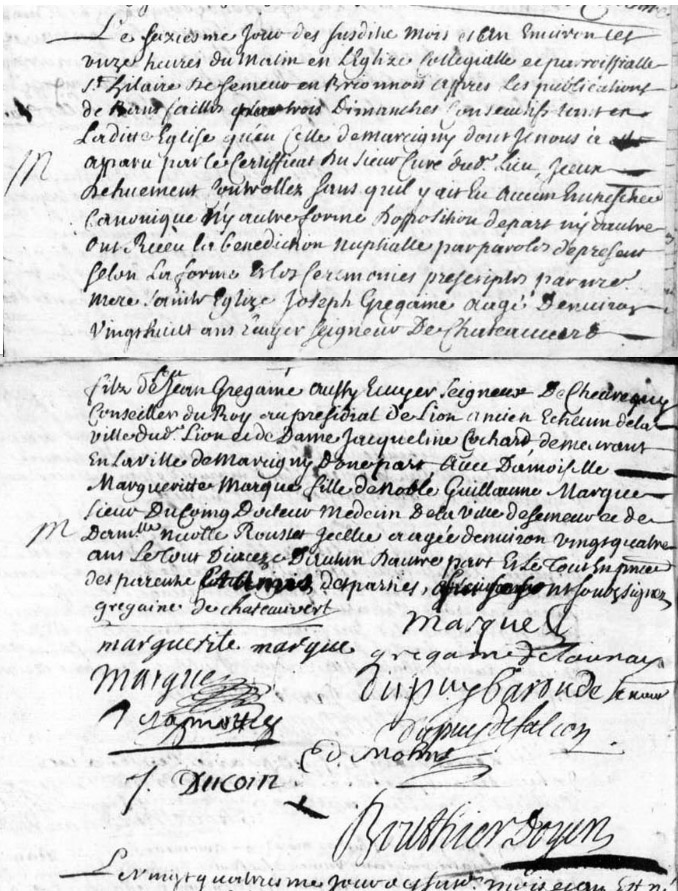 Le saixiesme Jour des susdits mois et an Environ les
unze heures du matin en L'Eglize Collegialle et parroissialle
St. Hilaire de Semeur en Brionnois appres les publications
de Bans faittes par trois Dimanches Consecutifs tant en
Laditte Eglise qu'en Celle de Marcigny dont Je nous a
apparu par le Certifficat du Sieur Curé dud. Lieu,
M
sans quil y ait Eu Aucun Empeschet
Canonique N'y autre forme D'opposition de part ny d'autre
Ont Receu la benediction nuptialle par paroles de present
selon La forme Et les Ceremonies prescriptes par nre
mere sainte Eglize Joseph Gregaine aagé D'environ
vingt huict ans Escuyer Seigneur De Chateauvert
filz de Jean Gregaine aussy Ecuyer Seigneur De
Conseiller du Roy au presidial de Lion ancien Echevin de la
ville dud. Lion et de Dame Jacqueline Cochard demeurant
En La ville de Marcigny D'une part Avec Damoiselle
Margueritte Marque fille de Noble Guillaume Marque
Sieur Du Docteur Medecin De la ville de Semeur et de
M
Damlle Nicolle Rousset Jcelle aagée denviron vingt quatre
ans Le tout Dioceze D'autun D'autre part Et Le Tout En pnce
des parents des parties, soubz signez
gregaine de chateauvert
Marque
marguerite marque gregaine de Launay
Marque
Dupuy Baronde
Lamotte
dupuy
J. Ducoin
Bouthier Doyen
Le vingt quatriesme Jour des susd. mois et an